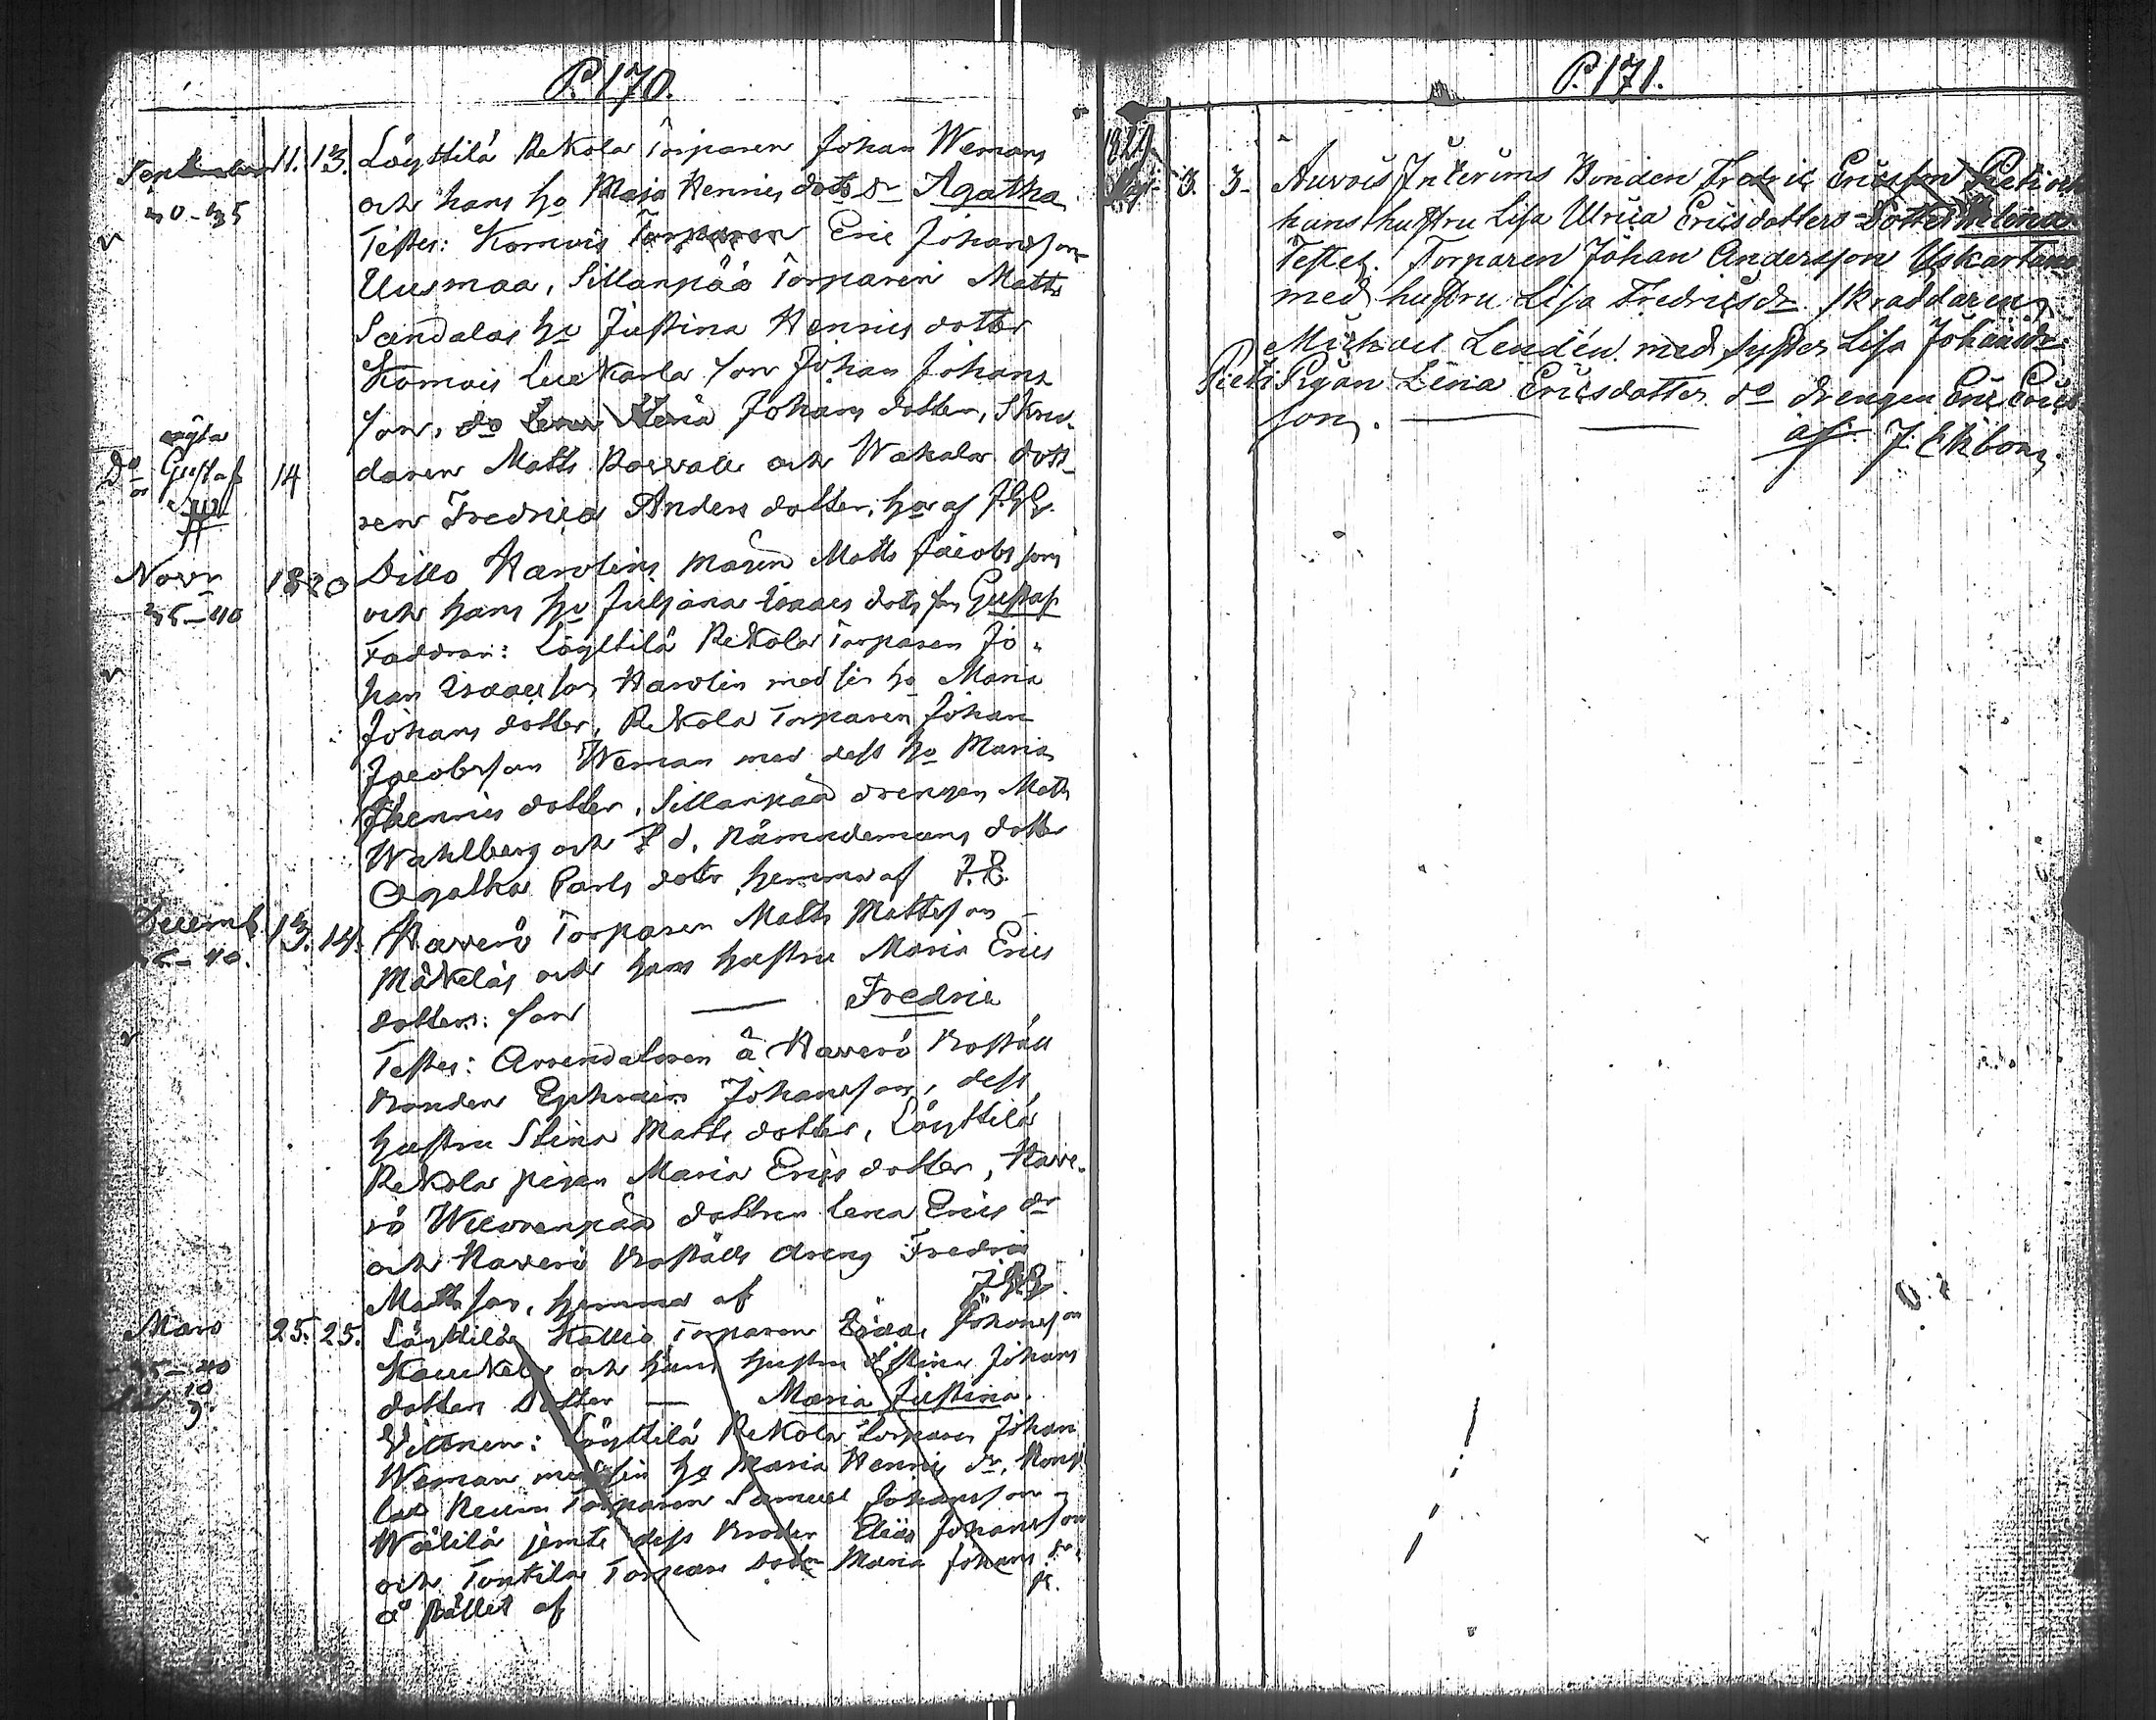 P. 170.
September 11. 13. Löyttilä Rekola Torparen Johan Wemans
30-35 och hans ho Maja Hennics dotr dr Agatha
Testes: Komois Torparen Eric Johansson
Uusmaa, Sillanpää Torparen Matts
Sandalas ho Justina Hennics dotter
Komois Luukarla son Johan Johans
son, do Lena Johans dotter, Skred-
Do Gustaf 14 daren Matts och dott-
ren Fredrica Anders dotter, ho af J.G.E.
Novr 18 20 Ditto Harolins mågen Matts Jacobsson
35-40 och hans ho Juliana Isaacs dotrs son Gustaf
Faddrar: Löyttilä Rekola Torparen Jo-
han Isaacsson Harolin med sin ho Maria
Johans dotter, Rekola Torparen Johan
Jacobsson Weman med dess ho Maria
Hennics dotter, Sillanpää drengen Matts
Wahlberg och F. d. Nämndemans dotter
Agatha Carls dotr hemma af J.E.
Decemb. 13. 14. Haverö Torparen Matts Mattsson
35-40. Mäkeläs och hans hustru Maria Erics
dotters: son — Fredric
Testes: Arrendatoren å Haverö Boställ
Bonden Ephraim Johansson, dess
hustru Stina Matts dotter, Löyttilä
Rekola pigan Maria Erics dotter, Have-
rö Wuorenpää dottren Lena Erics dr
och Haverö Boställs dreng Fredric
Matsson, hemma af J.G.E.
Mars 25. 25. Löyttilä Kallio Torparen Isaac Johansson
35-40 och hans hustru Stina Johans
dotters Dotter — Maria Justina.
Vittnen: Löyttilä Rekola Torparen Johan
Weman med sin ho Maria Hennics dr,
Torparen Samuel Johansson
Wälilä jemte dess Broder Elias Johansson
och Tontila Torpare Maria Johans dr
å stället af
P. 171.
1829
Sept. 3. 3. Auvois Interims Bonden Fredric Ericsson Pieti och
hans hustru Lisa Ulrica Ericsdotters Dotter Helena
Testes. Torparen Johan Andersson Yskartano
med hustru Lisa Fredricsdr Skräddaren
Michael Lenden med syster Lisa Johansdr
Pieti Pigan Lena Ericsdotter do drengen Eric Erics
son. — — af J. Ekbom